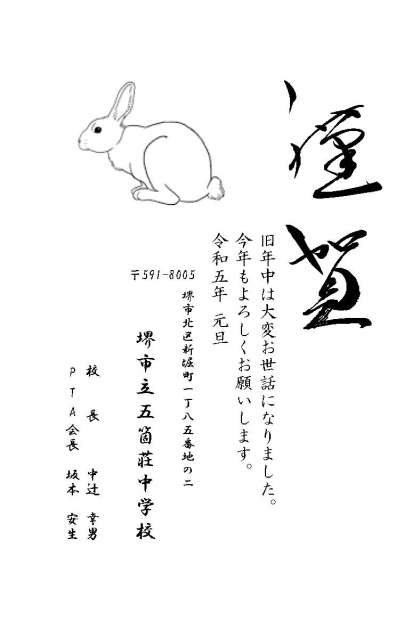 謹賀
旧年中は大変お世話になりました。
今年もよろしくお願いします。
令和五年 元旦
〒591-8005
堺市北区新堀町一丁八五番地の二
堺市立五箇荘中学校
校長 中辻 幸男
PTA会長 坂本 安生